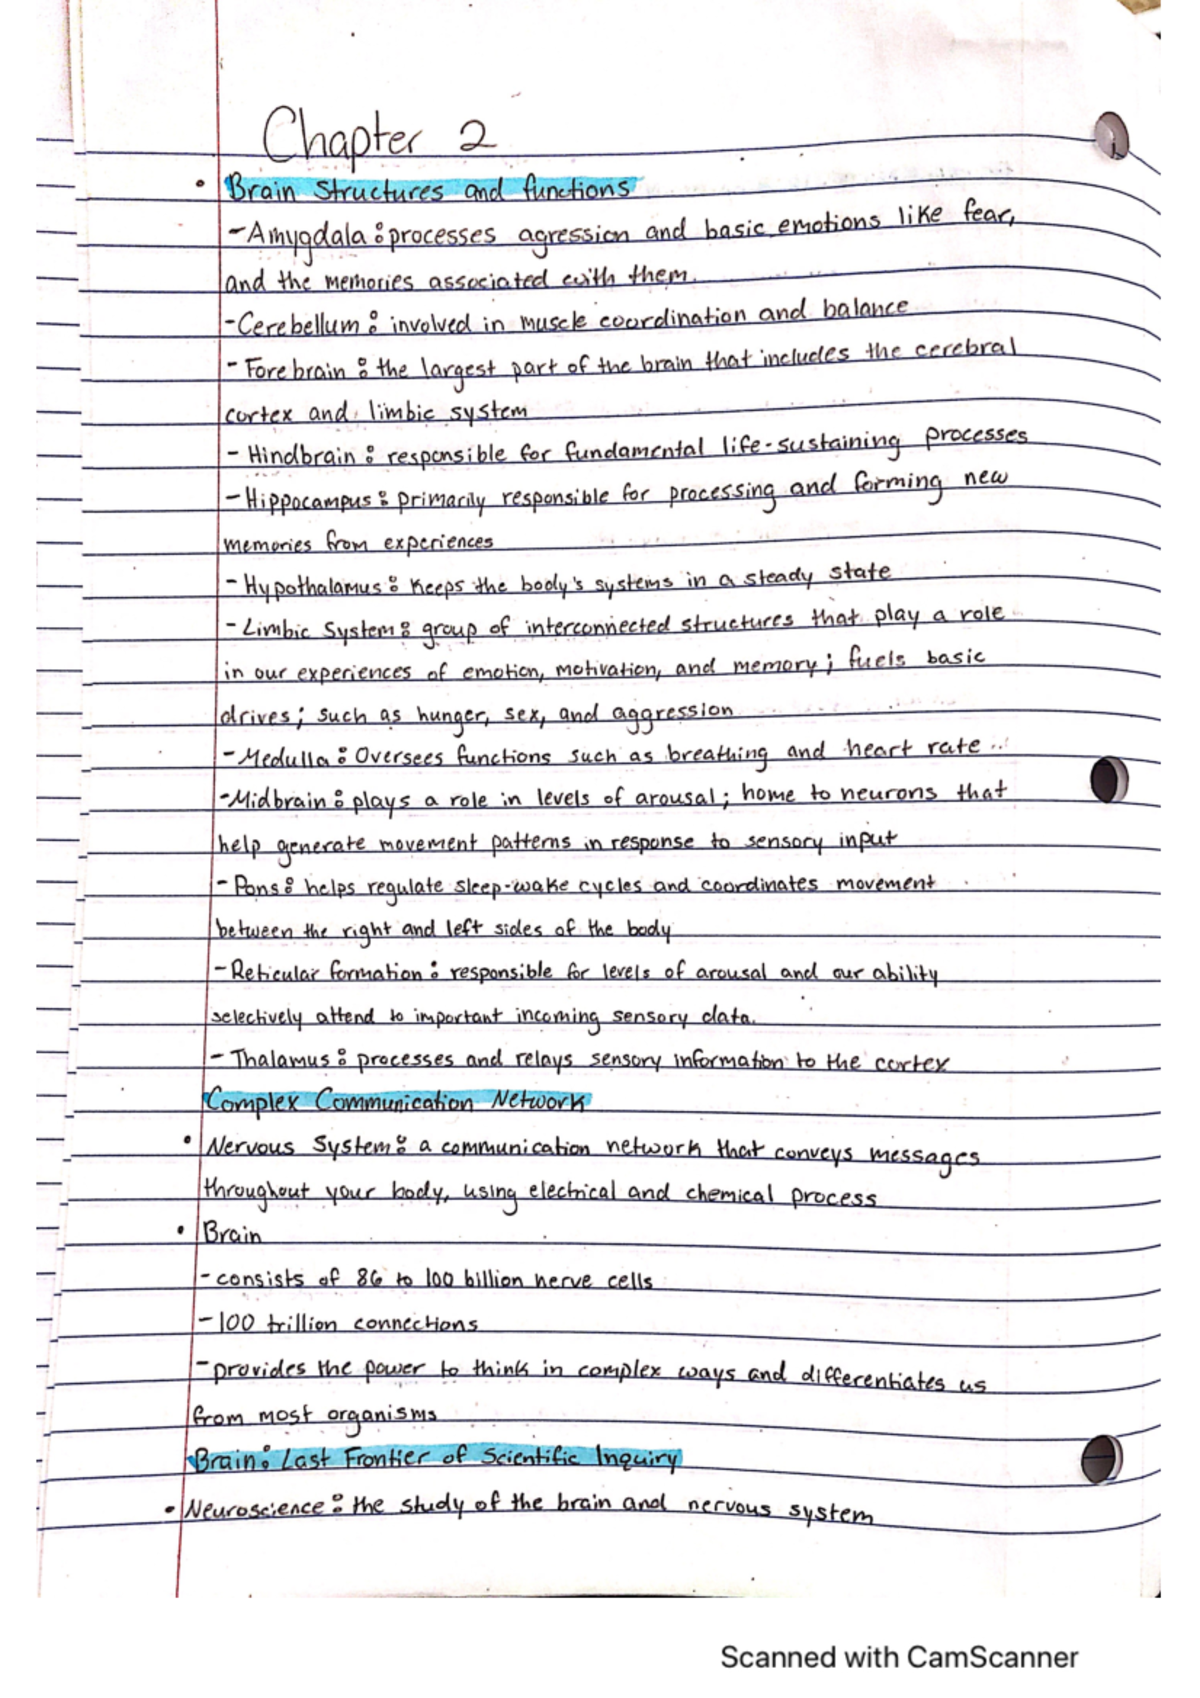 Chapter 2
• Brain Structures and functions
- Amygdala: processes agression and basic emotions like fear,
and the memories associated with them.
- Cerebellum: involved in muscle coordination and balance
- Forebrain: the largest part of the brain that includes the cerebral
cortex and limbic system
- Hindbrain: responsible for fundamental life-sustaining processes
- Hippocampus: primarily responsible for processing and forming new
memories from experiences
- Hypothalamus: keeps the body's systems in a steady state
- Limbic System: group of interconnected structures that play a role
in our experiences of emotion, motivation, and memory; fuels basic
drives; such as hunger, sex, and aggression
- Medulla: Oversees functions such as breathing and heart rate
- Midbrain: plays a role in levels of arousal; home to neurons that
help generate movement patterns in response to sensory input
- Pons: helps regulate sleep-wake cycles and coordinates movement
between the right and left sides of the body
- Reticular formation: responsible for levels of arousal and our ability
selectively attend to important incoming sensory data.
- Thalamus: processes and relays sensory information to the cortex
Complex Communication Network
• Nervous System: a communication network that conveys messages
throughout your body, using electrical and chemical process
• Brain
- consists of 86 to 100 billion nerve cells
- 100 trillion connections
- provides the power to think in complex ways and differentiates us
from most organisms
Brain: Last Frontier of Scientific Inquiry
• Neuroscience: the study of the brain and nervous system
Scanned with CamScanner